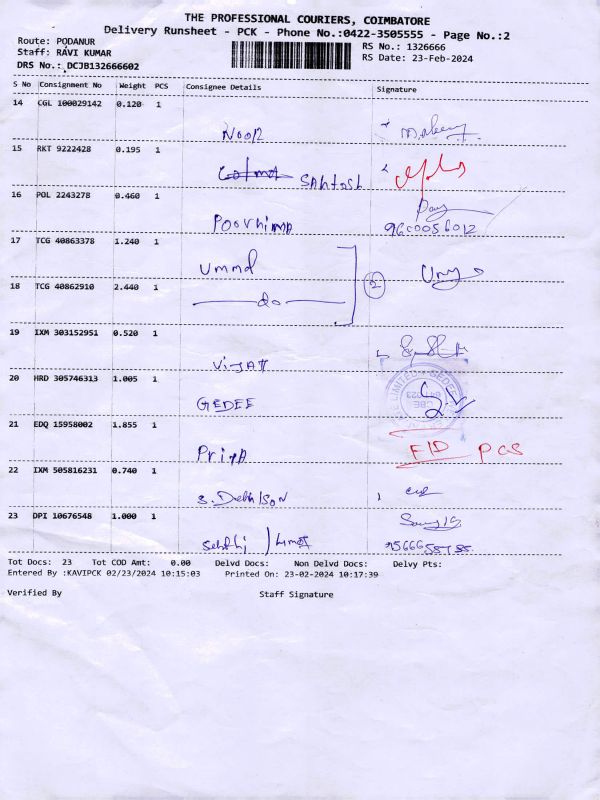 THE PROFESSIONAL COURIERS, COIMBATORE
Delivery Runsheet - PCK - Phone No.:0422-3505555 - Page No.:2
Route: PODANUR
Staff: RAVI KUMAR
DRS No.: DCJB132666602
RS No.: 1326666
RS Date: 23-Feb-2024
S No Consignment No Weight PCS Consignee Details Signature
14 CGL 100029142 0.120 1
Noor
15 RKT 9222428 0.195 1
Santosh
16 POL 2243278 0.460 1
Poorhima
9600056012
17 TCG 40863378 1.240 1
Ummd
18 TCG 40862910 2.440 1
do
2
19 IXM 303152951 0.520 1
Vijay
20 HRD 305746313 1.005 1
GEDEE
21 EDQ 15958002 1.855 1
Priya
PCS
22 IXM 505816231 0.740 1
23 DPI 10676548 1.000 1
Tot Docs: 23 Tot COD Amt: 0.00 Delvd Docs: Non Delvd Docs: Delvy Pts:
Entered By :KAVIPCK 02/23/2024 10:15:03 Printed On: 23-02-2024 10:17:39
Verified By Staff Signature